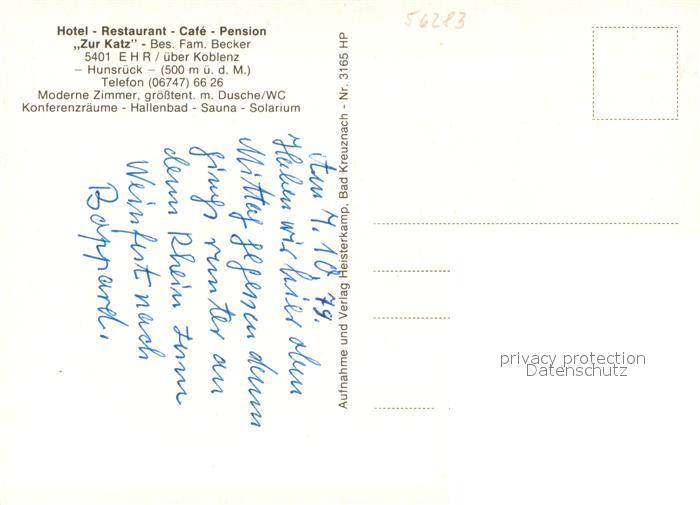 Hotel - Restaurant - Café - Pension
„Zur Katz" - Bes. Fam. Becker
5401 E H R / über Koblenz
– Hunsrück – (500 m ü. d. M.)
Telefon (06747) 66 26
Moderne Zimmer, größtent. m. Dusche/WC
Konferenzräume - Hallenbad - Sauna - Solarium
56283
7. 10. 79.
Haben wir hier oben
Mittag gegessen dann
gings runter an
denn Rhein zum
Weinfest nach
Boppard.
Aufnahme und Verlag Heisterkamp, Bad Kreuznach - Nr. 3165 HP
privacy protection
Datenschutz